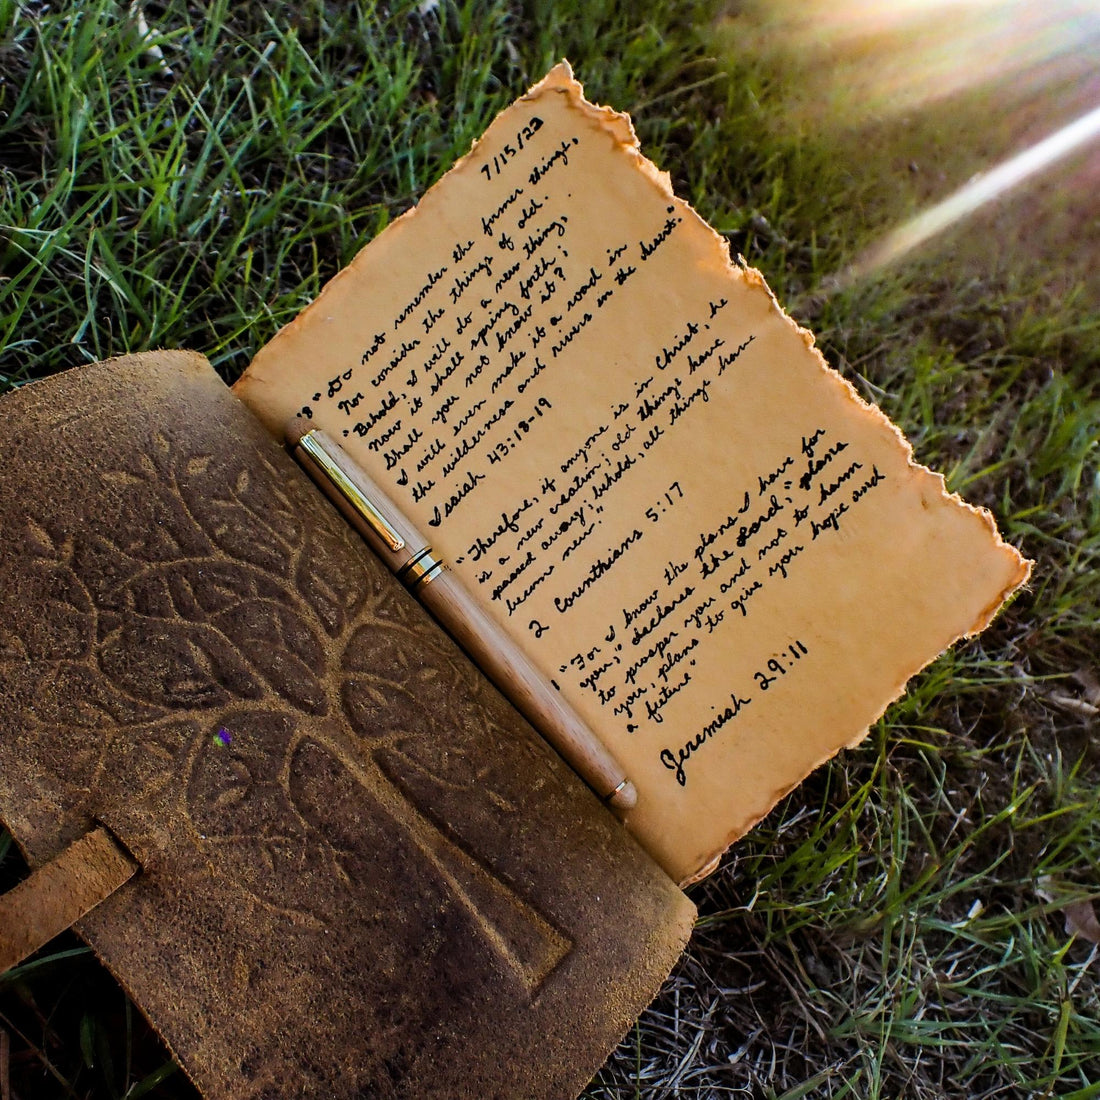 7/15/23
"18 "Do not remember the former things,
Nor consider the things of old.
"Behold, I will do a new thing,
Now it shall spring forth;
Shall you not know it?
I will even make it a road in
the wilderness and rivers in the desert."
Isaiah 43:18-19
"Therefore, if anyone is in Christ, he
is a new creation; old things have
passed away; behold, all things have
becom new."
2 Corinthians 5:17
"For I know the plans I have for
you," declares the Lord," plans
to prosper you and not to harm
you, plans to give you hope and
a future"
Jeremiah 29:11